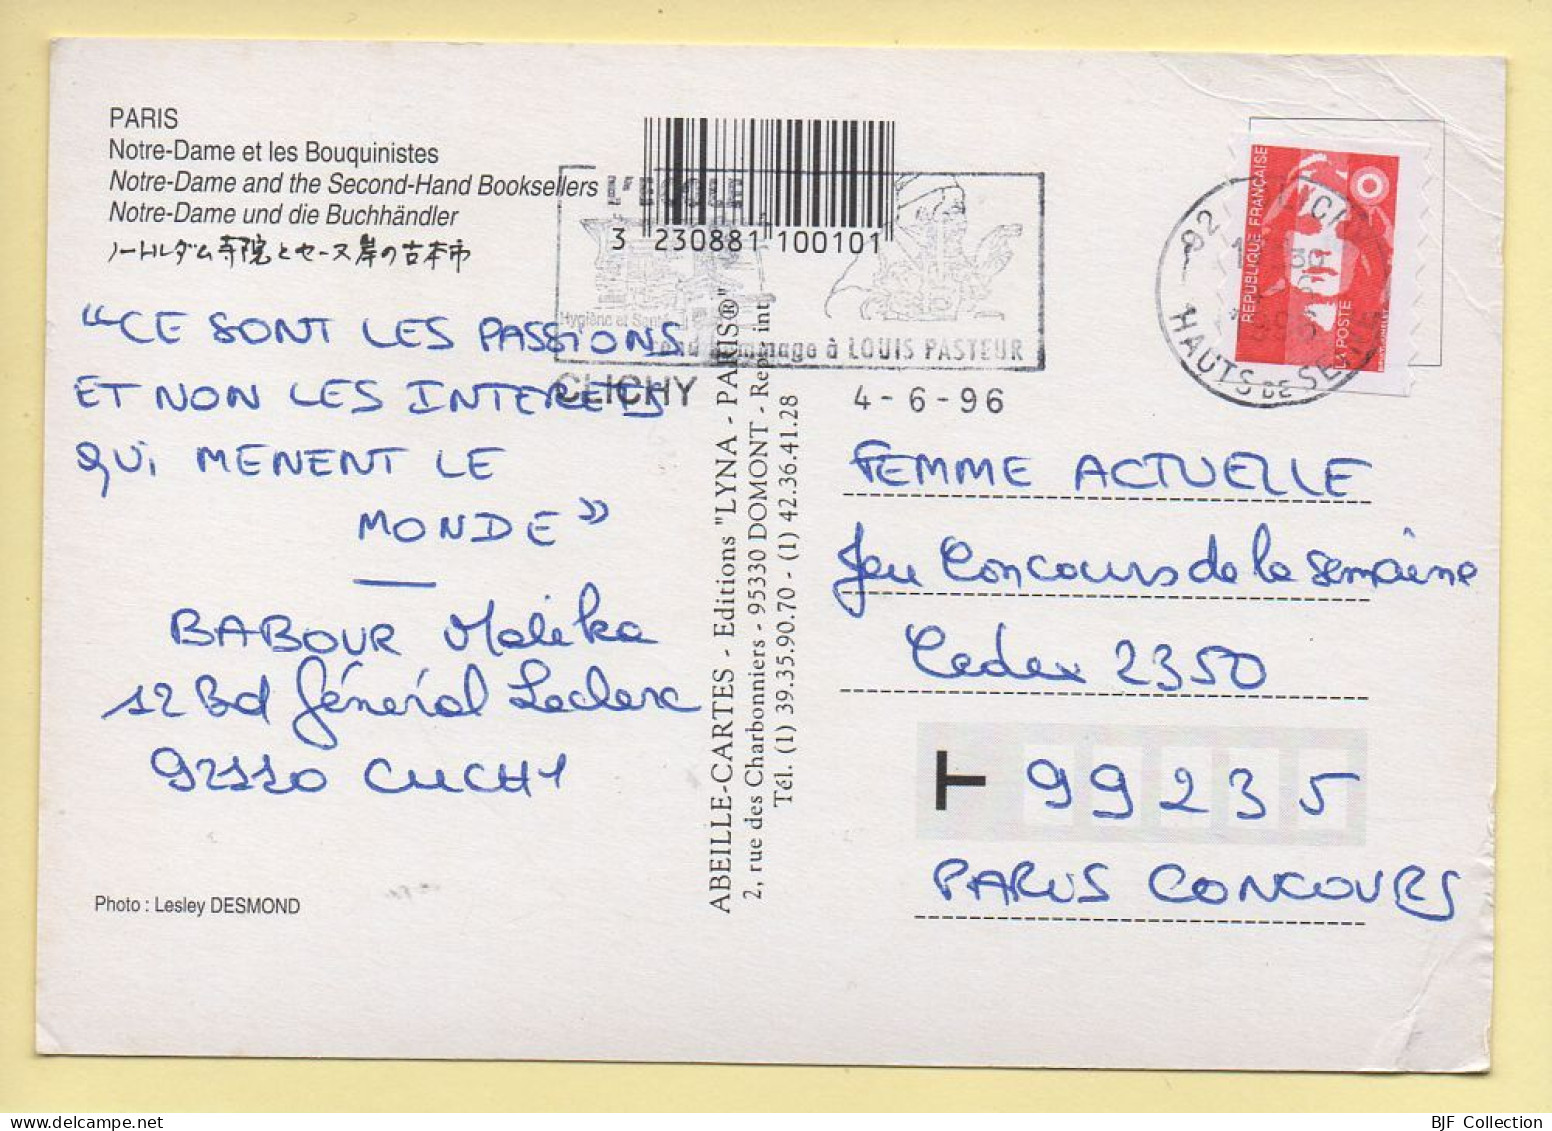 PARIS
Notre-Dame et les Bouquinistes
Notre-Dame and the Second-Hand Booksellers
Notre-Dame und die Buchhändler
ノートルダム寺院とセーヌ岸の古本市
"CE SONT LES PASSIONS
ET NON LES INTERETS
QUI MENENT LE
MONDE"
BABOUR Malika
12 Bd Général Leclerc
92110 CLICHY
Photo : Lesley DESMOND
L'ECOLE
3 230881 100101
Hygiène et Santé
rend hommage à LOUIS PASTEUR
CLICHY
4-6-96
ABEILLE-CARTES - Editions "LYNA - PARIS®"
2, rue des Charbonniers - 95330 DOMONT - Repr. int.
Tél. (1) 39.35.90.70 - (1) 42.36.41.28
92
HAUTS DE SEINE
REPUBLIQUE FRANÇAISE
LA POSTE
FEMME ACTUELLE
Jeu Concours de la semaine
Cedex 2350
T 99235
PARIS CONCOURS
BJF Collection